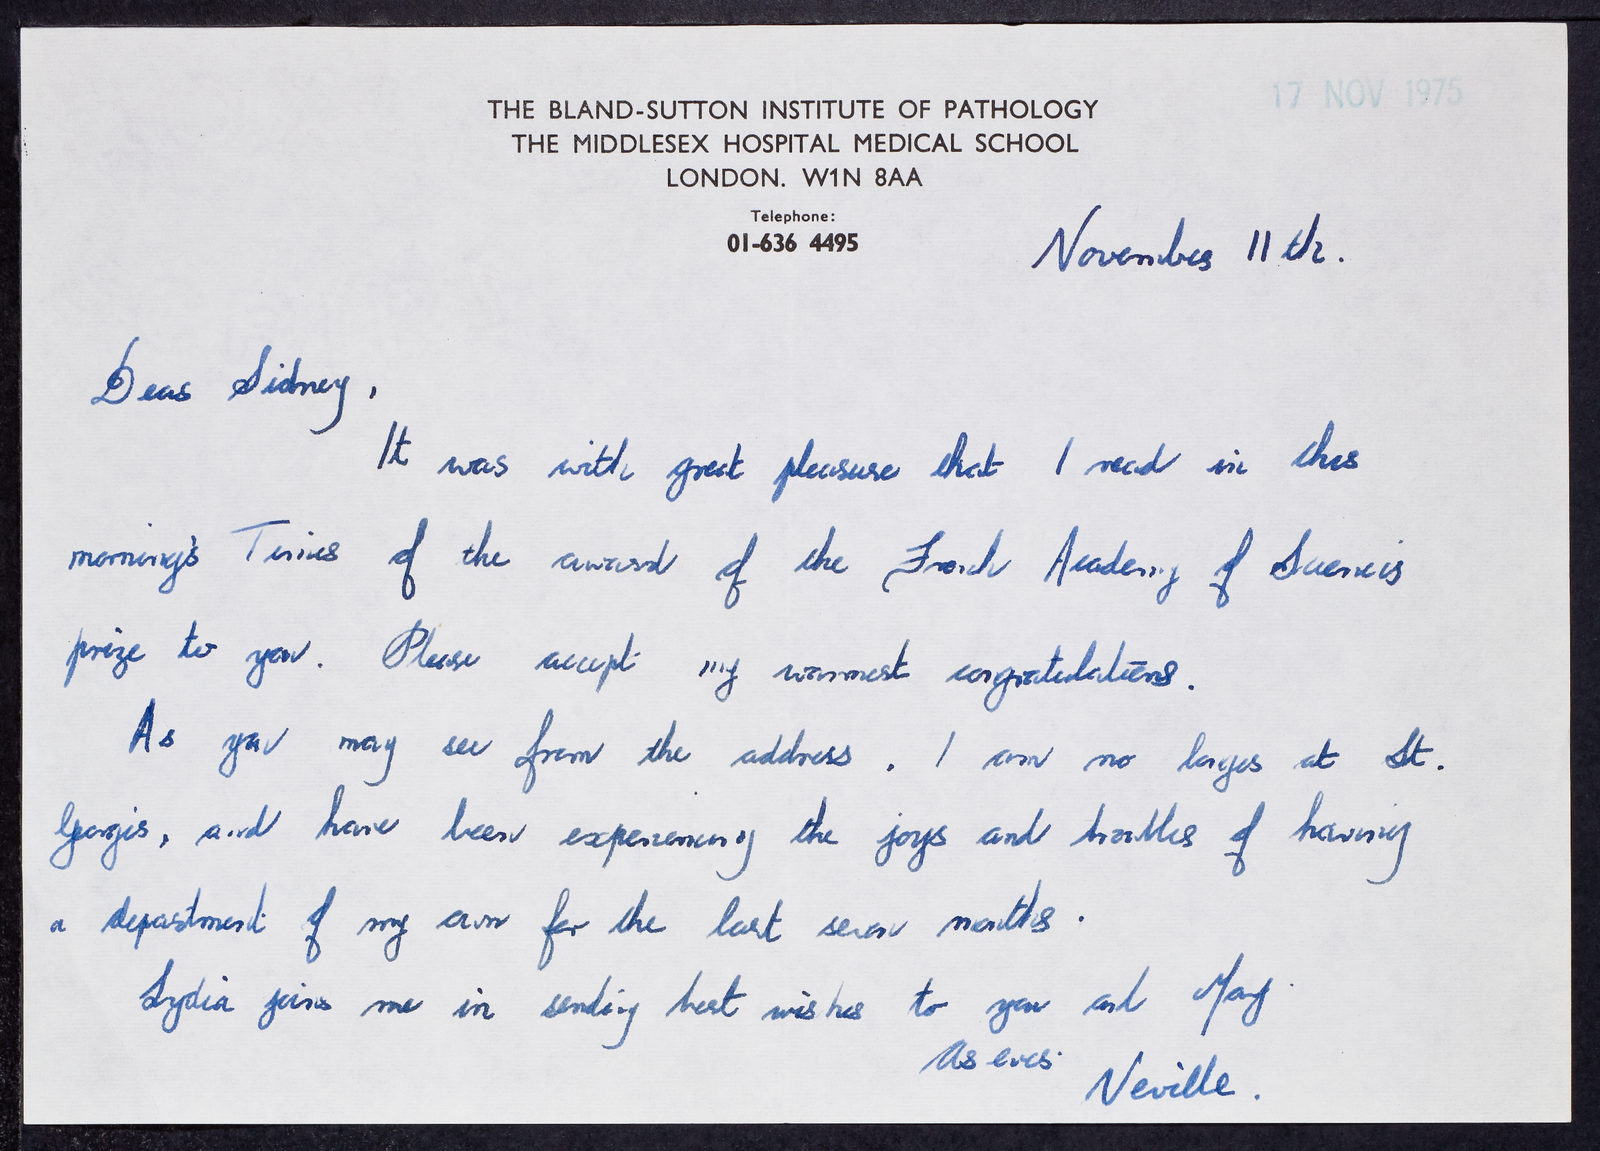 17 NOV 1975
THE BLAND-SUTTON INSTITUTE OF PATHOLOGY
THE MIDDLESEX HOSPITAL MEDICAL SCHOOL
LONDON. W1N 8AA
Telephone:
01-636 4495
November 11th.
Dear Sidney,
It was with great pleasure that I read in this
morning's Times of the award of the French Academy of Sciences
prize to you. Please accept my warmest congratulations.
As you may see from the address, I am no longer at St.
Georges, and have been experiencing the joys and troubles of having
a department of my own for the last seven months.
Lydia joins me in sending best wishes to you and May.
As ever
Neville.